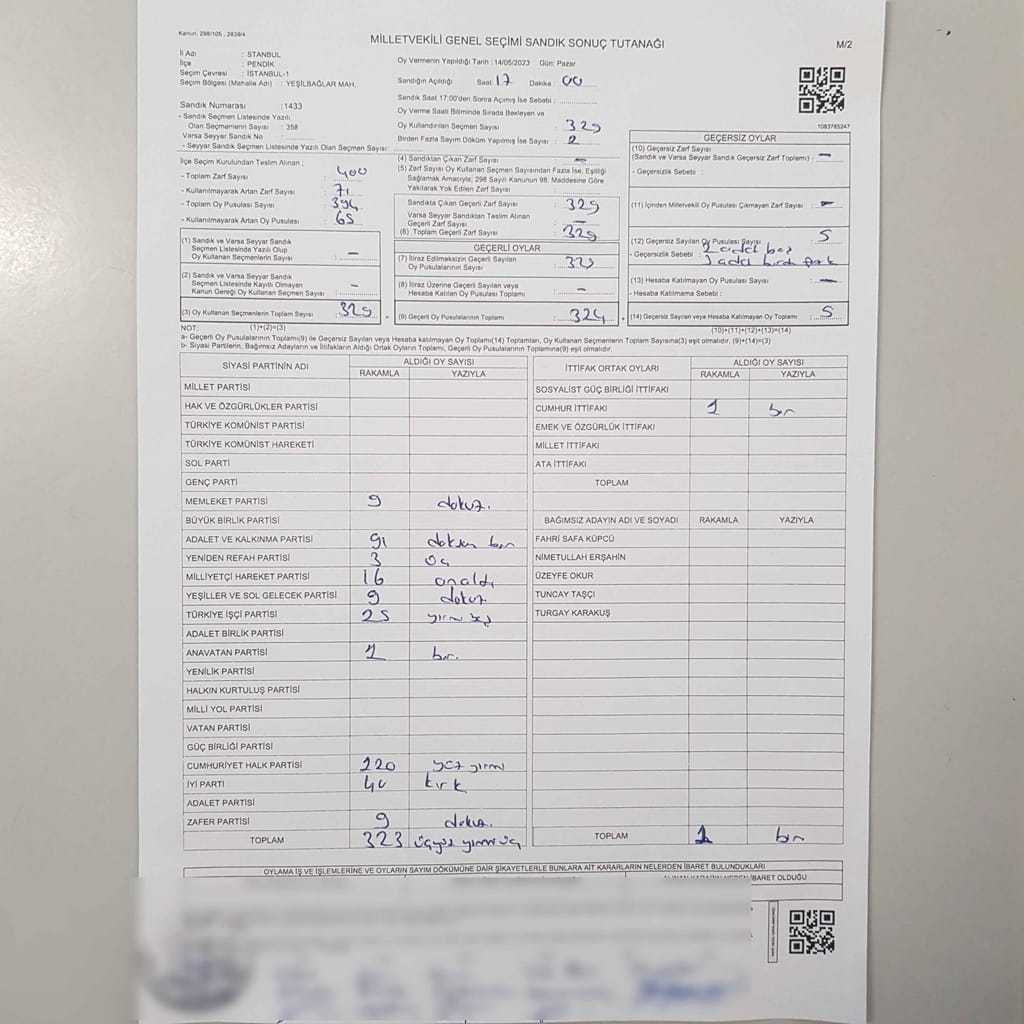 Kanun: 298/105 , 2839/4
MİLLETVEKİLİ GENEL SEÇİMİ SANDIK SONUÇ TUTANAĞI
M/2
İl Adı : STANBUL
İlçe : PENDİK
Seçim Çevresi : İSTANBUL-1
Seçim Bölgesi (Mahalle Adı) : YEŞİLBAĞLAR MAH.
Sandık Numarası : 1433
- Sandık Seçmen Listesinde Yazılı
Olan Seçmenlerin Sayısı : 358
Varsa Seyyar Sandık No :
- Seyyar Sandık Seçmen Listesinde Yazılı Olan Seçmen Sayısı:
İlçe Seçim Kurulundan Teslim Alınan ;
- Toplam Zarf Sayısı : 400
- Kullanılmayarak Artan Zarf Sayısı : 71
- Toplam Oy Pusulası Sayısı : 394
- Kullanılmayarak Artan Oy Pusulası : 65
(1) Sandık ve Varsa Seyyar Sandık
Seçmen Listesinde Yazılı Olup
Oy Kullanan Seçmenlerin Sayısı : -
(2) Sandık ve Varsa Seyyar Sandık
Seçmen Listesinde Kayıtlı Olmayan
Kanun Gereği Oy Kullanan Seçmen Sayısı : -
(3) Oy Kullanan Seçmenlerin Toplam Sayısı : 329
Oy Vermenin Yapıldığı Tarih : 14/05/2023 Gün: Pazar
Sandığın Açıldığı Saat: 17 Dakika : 00
Sandık Saat 17:00'den Sonra Açımış İse Sebebi :
Oy Verme Saati Bitiminde Sırada Bekleyen ve
Oy Kullandırılan Seçmen Sayısı : 329
Birden Fazla Sayım Döküm Yapılmış İse Sayısı : 2
(4) Sandıktan Çıkan Zarf Sayısı : -
(5) Zarf Sayısı Oy Kullanan Seçmen Sayısından Fazla İse, Eşitliği
Sağlamak Amacıyla; 298 Sayılı Kanunun 98. Maddesine Göre
Yakılarak Yok Edilen Zarf Sayısı :
Sandıkta Çıkan Geçerli Zarf Sayısı : 329
Varsa Seyyar Sandıktan Teslim Alınan
Geçerli Zarf Sayısı : -
(6) Toplam Geçerli Zarf Sayısı : 329
GEÇERLİ OYLAR
(7) İtiraz Edilmeksizin Geçerli Sayılan
Oy Pusulalarının Sayısı : 329
(8) İtiraz Üzerine Geçerli Sayılan veya
Hesaba Katılan Oy Pusulası Toplamı : -
(9) Geçerli Oy Pusulalarının Toplamı : 324
1083785247
GEÇERSİZ OYLAR
(10) Geçersiz Zarf Sayısı
(Sandık ve Varsa Seyyar Sandık Geçersiz Zarf Toplamı) : -
- Geçersizlik Sebebi :
(11) İçinden Milletvekili Oy Pusulası Çıkmayan Zarf Sayısı : -
(12) Geçersiz Sayılan Oy Pusulası Sayısı : 5
- Geçersizlik Sebebi : 2 adet boş
3 adet birden fazla
(13) Hesaba Katılmayan Oy Pusulası Sayısı : -
- Hesaba Katılmama Sebebi :
(14) Geçersiz Sayılan veya Hesaba Katılmayan Oy Toplamı : 5
NOT: (1)+(2)=(3) (10)+(11)+(12)+(13)=(14)
a- Geçerli Oy Pusulalarının Toplamı(9) ile Geçersiz Sayılan veya Hesaba katılmayan Oy Toplamı(14) Toplamları, Oy Kullanan Seçmenlerin Toplam Sayısına(3) eşit olmalıdır, (9)+(14)=(3)
b- Siyasi Partilerin, Bağımsız Adayların ve İttifakların Aldığı Ortak Oyların Toplamı, Geçerli Oy Pusulalarının Toplamına(9) eşit olmalıdır.
SİYASİ PARTİNİN ADI ALDIĞI OY SAYISI
RAKAMLA YAZIYLA
MİLLET PARTİSİ
HAK VE ÖZGÜRLÜKLER PARTİSİ
TÜRKİYE KOMÜNİST PARTİSİ
TÜRKİYE KOMÜNİST HAREKETİ
SOL PARTİ
GENÇ PARTİ
MEMLEKET PARTİSİ 9 dokuz.
BÜYÜK BİRLİK PARTİSİ
ADALET VE KALKINMA PARTİSİ 91 doksan bir
YENİDEN REFAH PARTİSİ 3 üç
MİLLİYETÇİ HAREKET PARTİSİ 16 onaltı
YEŞİLLER VE SOL GELECEK PARTİSİ 9 dokuz
TÜRKİYE İŞÇİ PARTİSİ 25 yirmi beş
ADALET BİRLİK PARTİSİ
ANAVATAN PARTİSİ 1 bir.
YENİLİK PARTİSİ
HALKIN KURTULUŞ PARTİSİ
MİLLİ YOL PARTİSİ
VATAN PARTİSİ
GÜÇ BİRLİĞİ PARTİSİ
CUMHURİYET HALK PARTİSİ 120 yüz yirmi
İYİ PARTİ 40 kırk
ADALET PARTİSİ
ZAFER PARTİSİ 9 dokuz.
TOPLAM 323 üçyüz yirmi üç
İTTİFAK ORTAK OYLARI ALDIĞI OY SAYISI
RAKAMLA YAZIYLA
SOSYALİST GÜÇ BİRLİĞİ İTTİFAKI
CUMHUR İTTİFAKI 1 bir
EMEK VE ÖZGÜRLÜK İTTİFAKI
MİLLET İTTİFAKI
ATA İTTİFAKI
TOPLAM
BAĞIMSIZ ADAYIN ADI VE SOYADI RAKAMLA YAZIYLA
FAHRİ SAFA KÜPCÜ
NİMETULLAH ERŞAHİN
ÜZEYFE OKUR
TUNCAY TAŞÇI
TURGAY KARAKUŞ
TOPLAM 1 bir
OYLAMA İŞ VE İŞLEMLERİNE VE OYLARIN SAYIM DÖKÜMÜNE DAİR ŞİKAYETLERLE BUNLARA AİT KARARLARIN NELERDEN İBARET BULUNDUKLARI
İBARET OLDUĞU